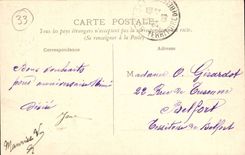 33
CARTE POSTALE
Tous les pays étrangers n'acceptent pas la correspondance au recto.
(Se renseigner à la Poste)
Correspondance
Adresse
Bons souhaits
pour anniversaire
Madame O. Girardot
22 Rue de
Belfort
Territoire de Belfort
Maurice